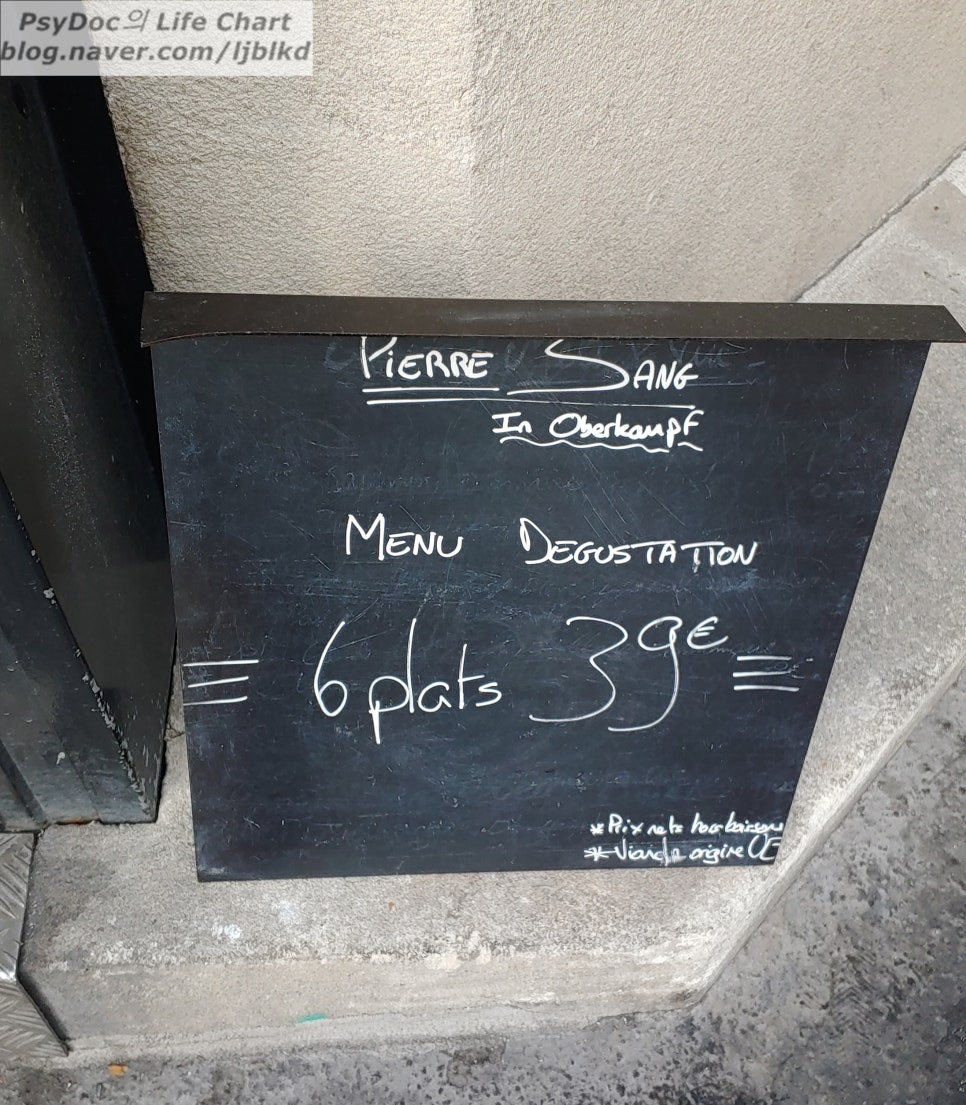 PsyDoc의 Life Chart
blog.naver.com/ljblkd
PIERRE SANG
In Oberkampf
MENU DEGUSTATION
6 plats 39€
* Prix nets hors boisson
* Viande origine UE